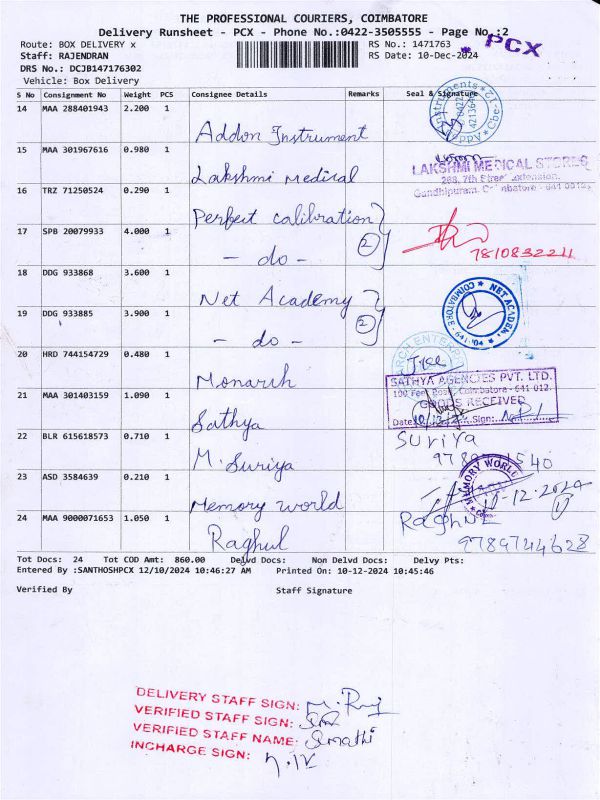 THE PROFESSIONAL COURIERS, COIMBATORE
Delivery Runsheet - PCX - Phone No.:0422-3505555 - Page No.:2
Route: BOX DELIVERY x
RS No.: 1471763
PCX
Staff: RAJENDRAN
RS Date: 10-Dec-2024
DRS No.: DCJB147176302
Vehicle: Box Delivery
S No Consignment No Weight PCS Consignee Details Remarks Seal & Signature
14 MAA 288401943 2.200 1
Addon Instrument
15 MAA 301967616 0.980 1
Lakshmi Medical
LAKSHMI MEDICAL STORES
268, 7th Street Extension,
Gandhipuram, Coimbatore - 641 012
16 TRZ 71250524 0.290 1
Perfect calibration
17 SPB 20079933 4.000 1
- do - 2
7810832211
18 DDG 933868 3.600 1
Net Academy
NET ACADEMY
COIMBATORE
19 DDG 933885 3.900 1
- do - 2
20 HRD 744154729 0.480 1
Monarch
SATHYA AGENCIES PVT. LTD.
100 Feet Road, Coimbatore - 641 012.
GOODS RECEIVED
21 MAA 301403159 1.090 1
Date: Sign:
Sathya
22 BLR 615618573 0.710 1
Suriya
M. Suriya
23 ASD 3584639 0.210 1
MEMORY WORLD
10-12-2024
Memory world
24 MAA 9000071653 1.050 1
Raghul
9789744628
Tot Docs: 24 Tot COD Amt: 860.00 Delvd Docs: Non Delvd Docs: Delvy Pts:
Entered By :SANTHOSHPCX 12/10/2024 10:46:27 AM Printed On: 10-12-2024 10:45:46
Verified By Staff Signature
DELIVERY STAFF SIGN: M. Raj
VERIFIED STAFF SIGN:
VERIFIED STAFF NAME: Sumathi
INCHARGE SIGN: